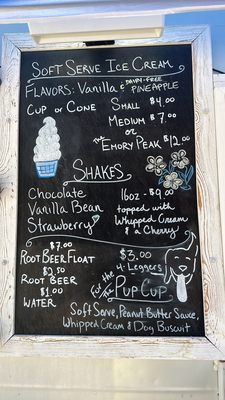 SOFT SERVE ICE CREAM
FLAVORS: VANILLA & DAIRY-FREE PINEAPPLE
CUP OR CONE
SMALL $4.00
MEDIUM $7.00
OR
"THE EMORY PEAK" $12.00
SHAKES
CHOCOLATE
VANILLA BEAN
STRAWBERRY
16oz - $8.00
topped with
WHIPPED CREAM
& a CHERRY
$7.00
ROOT BEER FLOAT
$2.50
ROOT BEER
$1.00
WATER
$3.00
for the 4-LEGGERS
THE PUP CUP
SOFT SERVE, PEANUT BUTTER SAUCE,
WHIPPED CREAM & DOG BUSCUIT